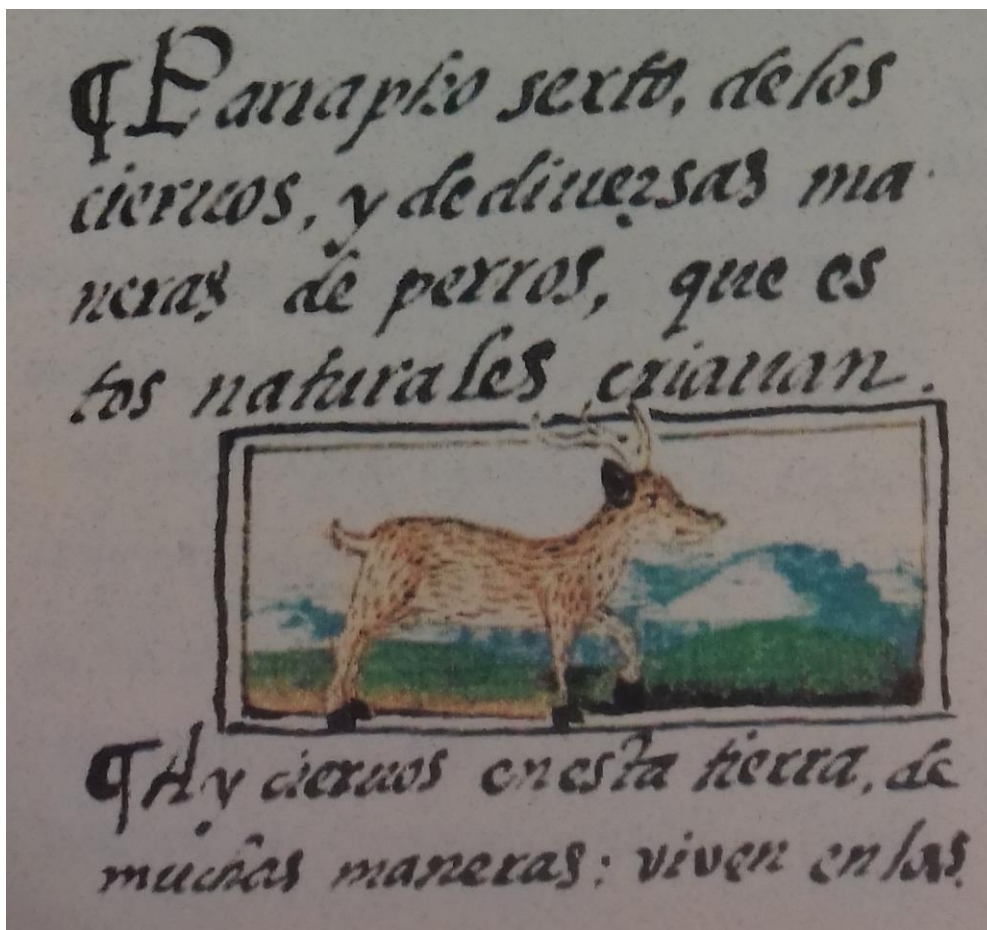 ¶ Parrapho sexto, de los
cieruos, y de diuersas ma
neras de perros, que es
tos naturales criauan.
¶ Ay cieruos en esta tierra, de
muchas maneras: viven en las